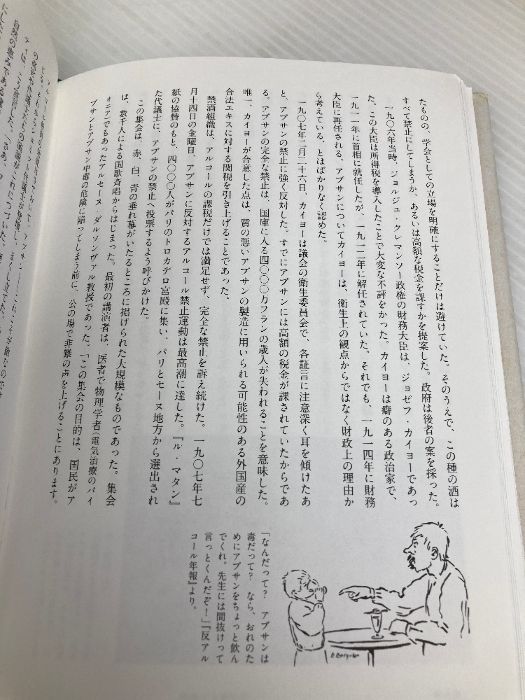 たものの、学会としての立場を明確にすることだけは避けていた。そのうえで、この種の酒は
すべて禁止にしてしまうか、あるいは高額な税金を課すかを提案した。政府は後者の案を採った。
一九〇六年当時、ジョルジュ・クレマンソー政権の財務大臣は、ジョゼフ・カイヨーであっ
た。この大臣は所得税を導入したことで大変な不評を買った。カイヨーは癖のある政治家で、
一九一一年に首相に就任したが、一九一二年に解任されていた。それでも、一九一四年に財務
大臣に再任される。アブサンについてカイヨーは、衛生上の観点からではなく財政上の理由か
ら考えている、とはばかりなく認めた。
一九〇七年二月二十六日、カイヨーは議会の衛生委員会で、各証言に注意深く耳を傾けたあ
と、アブサンの禁止に強く反対した。すでにアブサンには高額の税金が課されていたからであ
る。アブサンの完全な禁止は、国庫に入る四〇〇〇万フランの歳入が失われることを意味した。
唯一、カイヨーが合意した点は、質の悪いアブサンの製造に用いられる可能性のある外国産の
合法エキスに対する関税を引き上げることであった。
禁酒組織は、アルコールの課税だけでは満足せず、完全な禁止を訴え続けた。一九〇七年七
月十四日の金曜日、アブサンに反対するアルコール禁止運動は最高潮に達した。『ル・マタン』
紙の協賛のもと、四〇〇〇人がパリのトロカデロ宮殿に集い、パリとセーヌ地方から選出され
た代議士に、アブサンの禁止へ投票するよう呼びかけた。
この集会は、赤、白、青の垂れ幕がいたるところに掲げられた大規模なものであった。集会
は、数千人による国歌斉唱からはじまった。最初の講演者は、医者で物理学者（電気治療のパイ
オニア）でもあったアルセーヌ・ダルソンヴァル教授であった。「この集会の目的は、国民がア
ブサンとアブサン中毒の危険に陥ってしまう前に、公の場で非難の声を上げることにあります。
「なんだって？　アブサンは
毒だって？　なら、おれのた
めにアブサンをちょっと飲ん
でくれ。先生には間抜けって
言っとくんだぞ！」『反アル
コール年報』より。